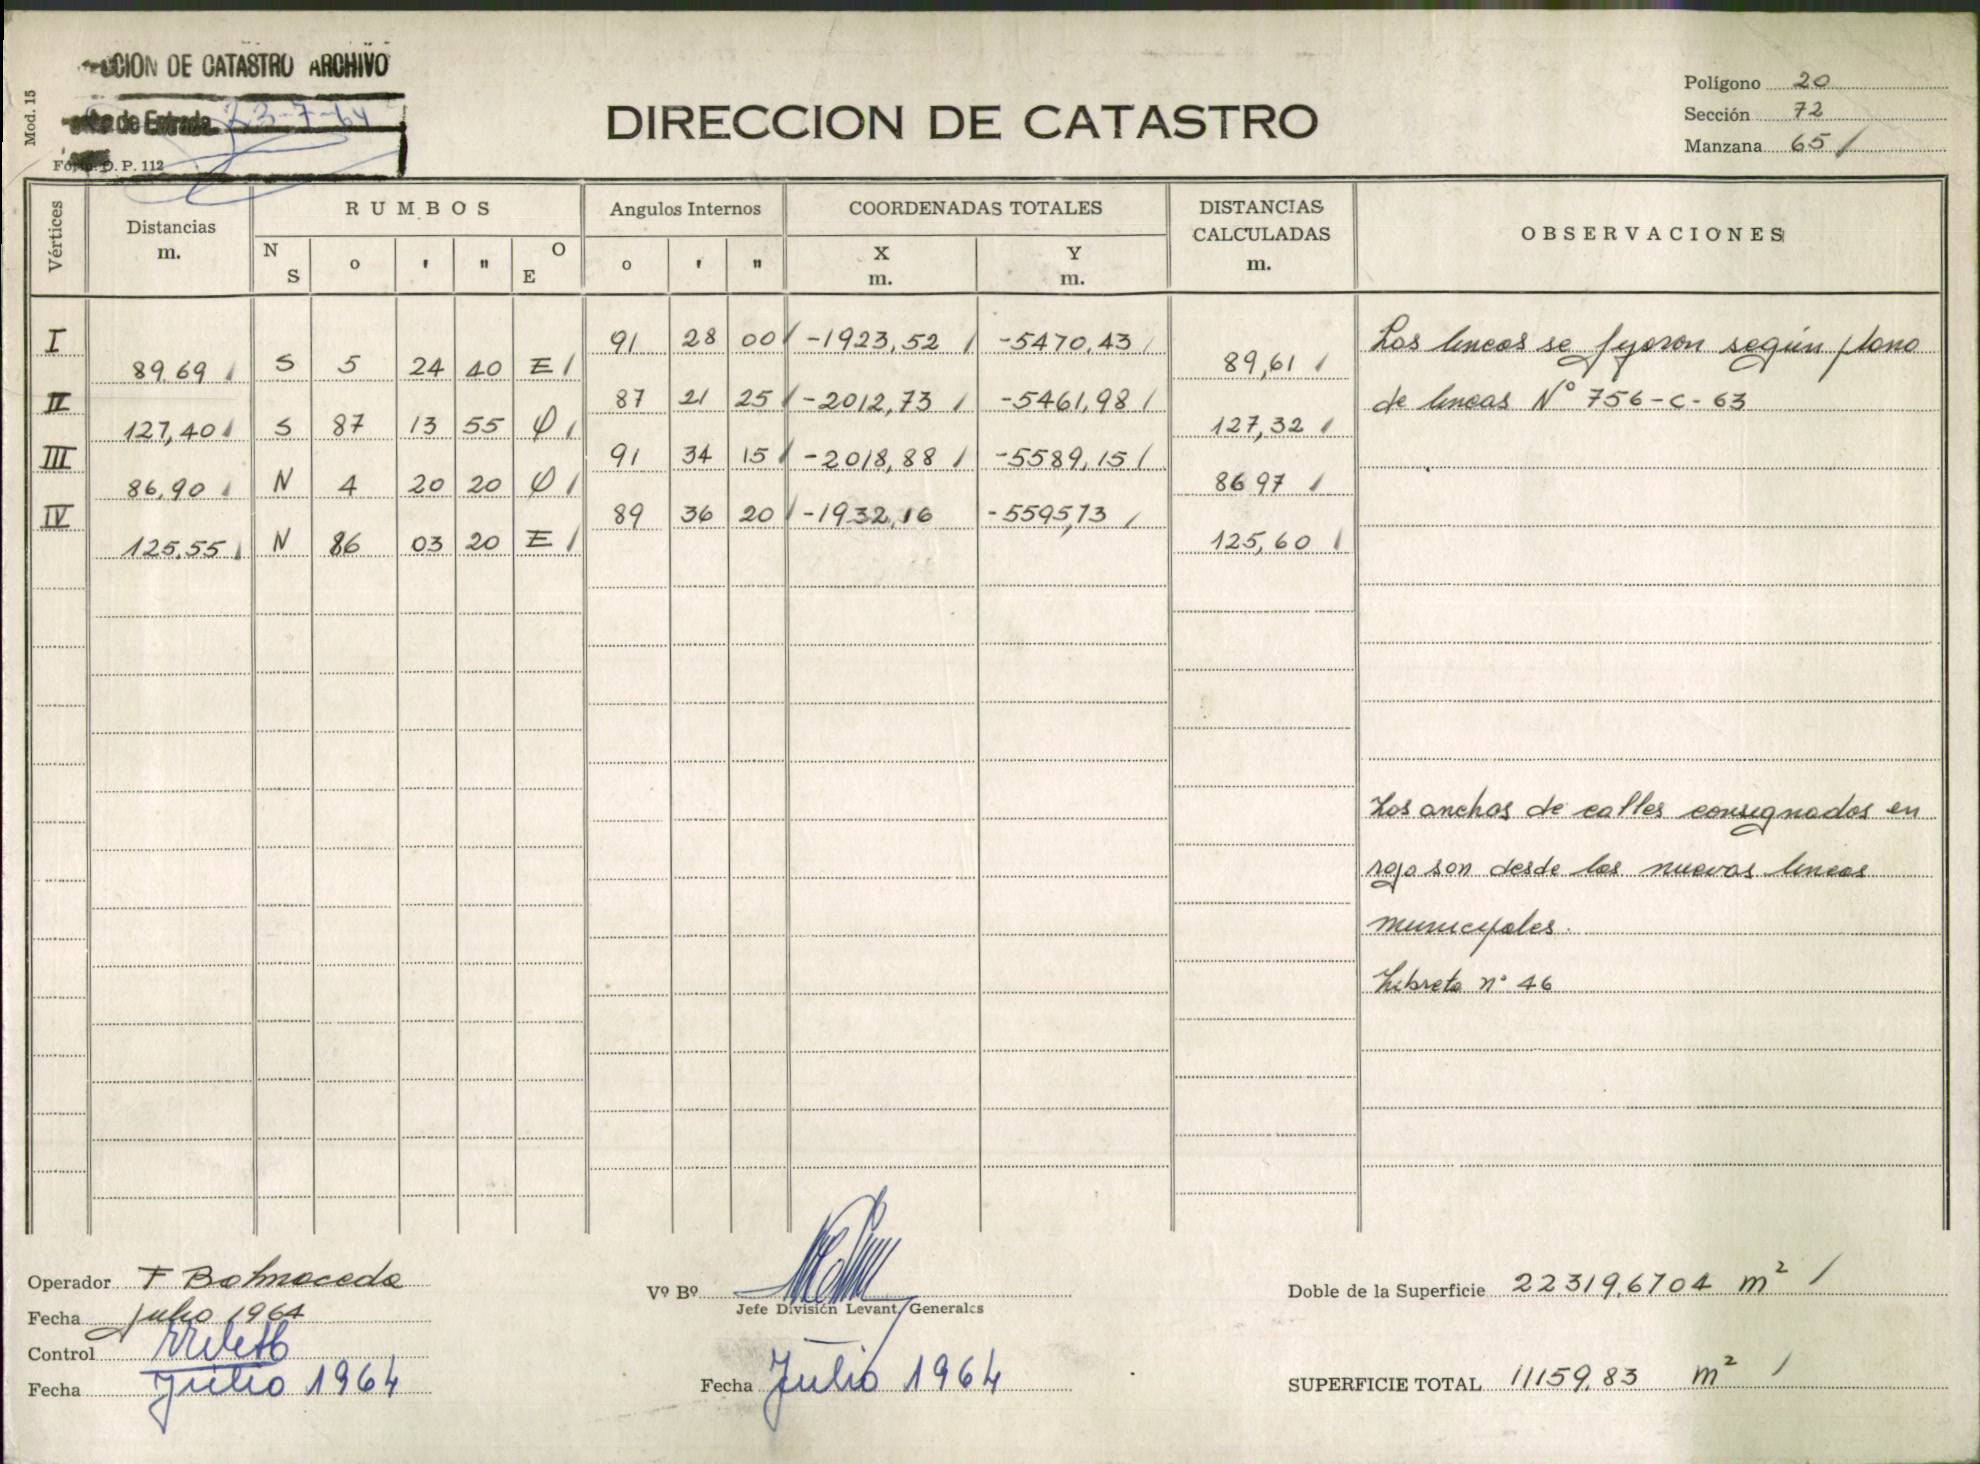 CION DE CATASTRO ARCHIVO
de Entrada 23-7-64
Mod. 15
O. P. 112
DIRECCION DE CATASTRO
Polígono 20
Sección 72
Manzana 65 /
Vértices
Distancias m.
RUMBOS
N S o ' " O E
Angulos Internos
o ' "
COORDENADAS TOTALES
X m.
Y m.
DISTANCIAS CALCULADAS m.
OBSERVACIONES
I 91 28 00 / -1923,52 / -5470,43 /
89,69 / S 5 24 40 E / 89,61 /
II 87 21 25 / -2012,73 / -5461,98 /
127,40 / S 87 13 55 O / 127,32 /
III 91 34 15 / -2018,88 / -5589,15 /
86,90 / N 4 20 20 O / 86,97 /
IV 89 36 20 / -1932,16 -5595,73 /
125,55 / N 86 03 20 E / 125,60 /
Las lineas se fijaron según plano
de lineas Nº 756-C-63
Los anchos de calles consignados en
rojo son desde las nuevas lineas
municipales.
Libreta nº 46
Operador F Balmaceda
Fecha Julio 1964
Control
Fecha Julio 1964
Vº Bº
Jefe División Levant. Generales
Fecha Julio 1964
Doble de la Superficie 22319,6704 m² /
SUPERFICIE TOTAL 11159,83 m² /